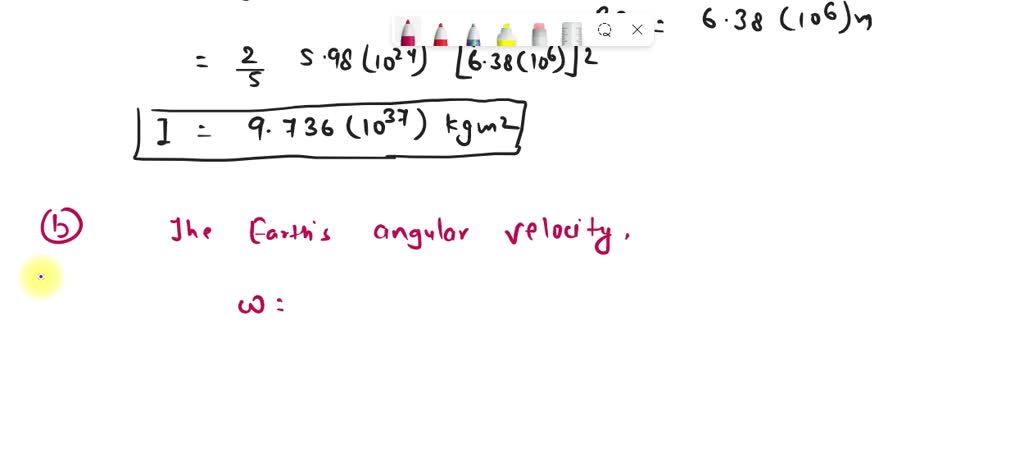 = 6.38 (10⁶)m
= 2/5 5.98 (10²⁴) [6.38(10⁶)]2
I = 9.736 (10³⁷) kgm2
(b) The Earth's angular velocity,
ω =